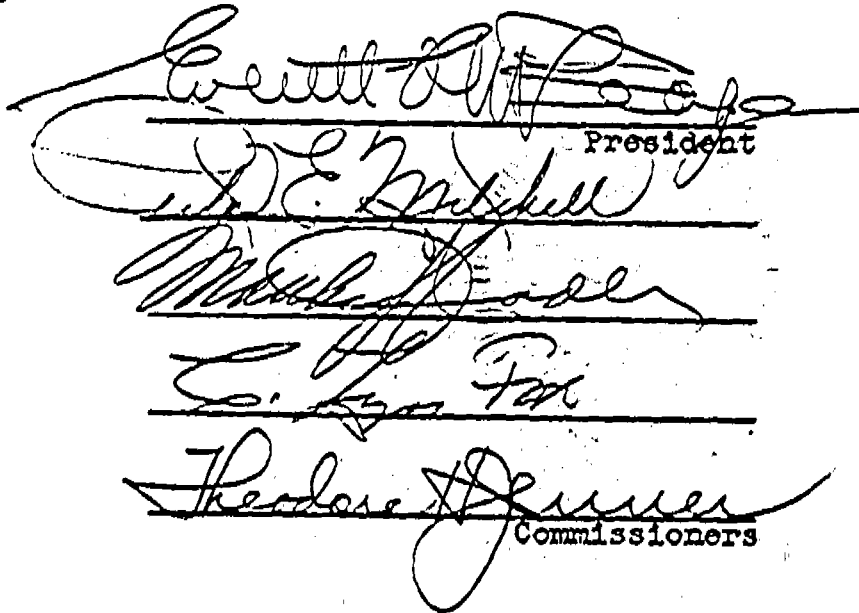 Everett C. McKeage
President
E. Mitchell
C. Lyn Fox
Theodore H. Jenner
Commissioners